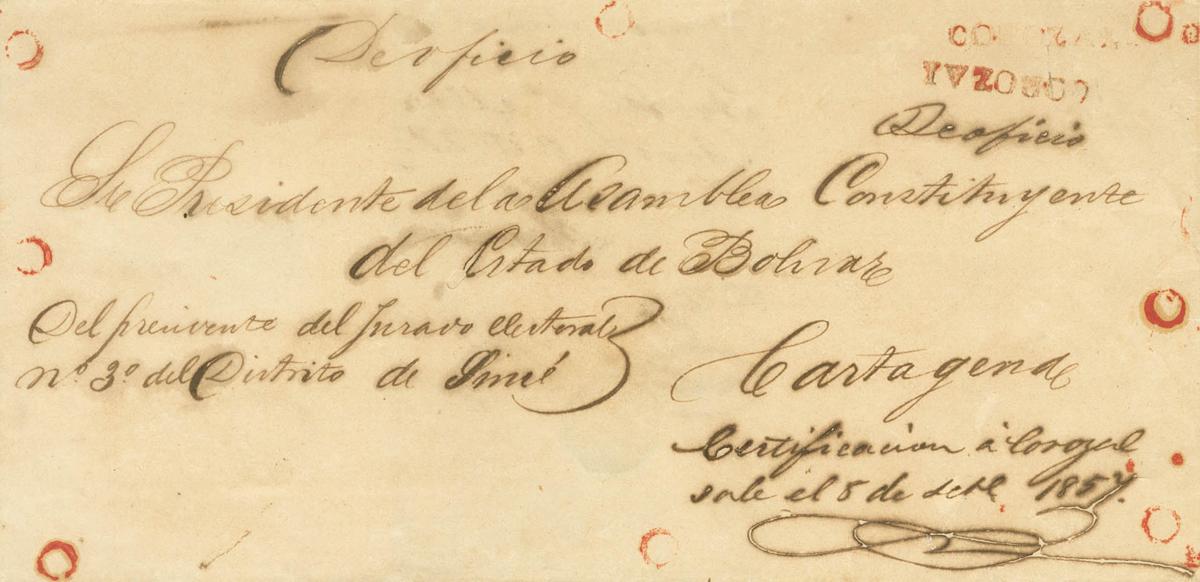 De oficio
COROZAL
COROZAL
De oficio
Sr Presidente de la Asamblea Constituyente
del Estado de Bolivar
Del presidente del Jurado electoral
nº 3º del Distrito de Sincé
Cartagena
Certificacion á Corozal
sale el 8 de setbe 1857.